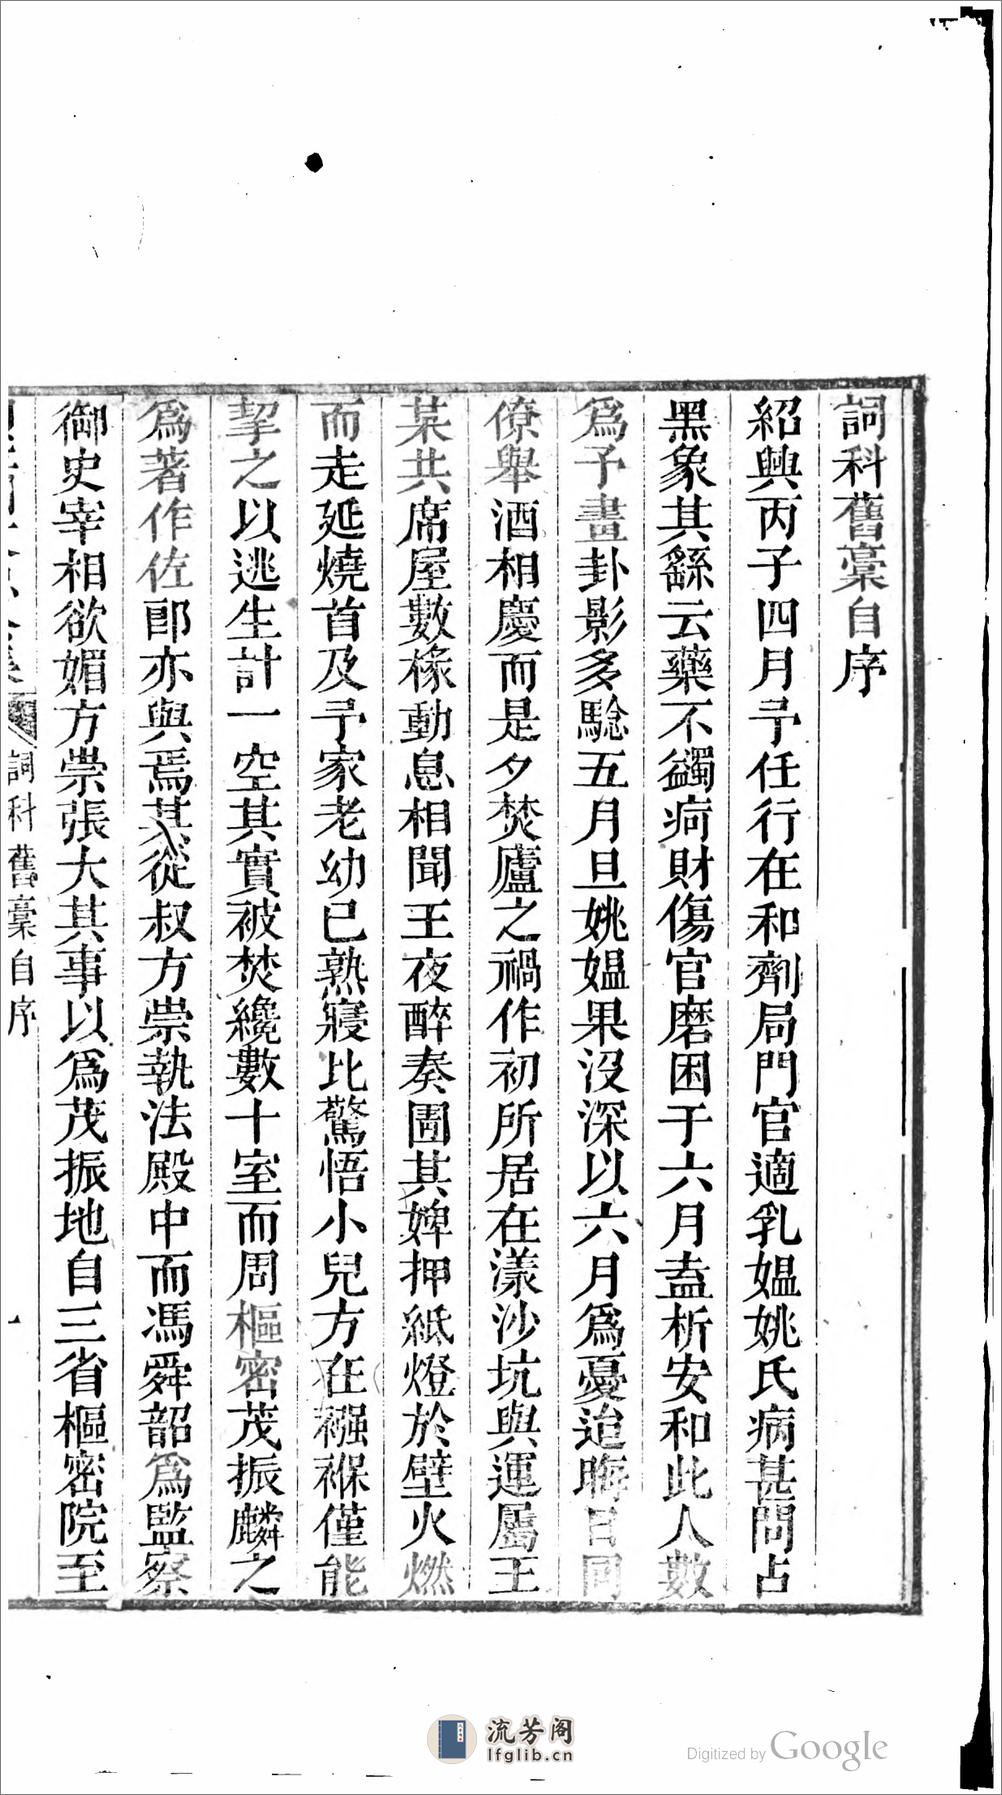 詞科舊稾自序
紹興丙子四月予任行在和劑局門官適乳媪姚氏病甚問占
黑象其繇云藥不蠲疴財傷官磨困于六月盍析安和此人數
爲予畫卦影多騐五月旦姚媪果沒深以六月爲憂迨晦日同
僚舉酒相慶而是夕焚廬之禍作初所居在漾沙坑與運屬王
某共席屋數椽動息相聞王夜醉奏圊其婢押紙燈於壁火燃
而走延燒首及予家老幼已熟寢比驚悟小兒方在襁褓僅能
挈之以逃生計一空其實被焚纔數十室而周樞密茂振麟之
爲著作佐郎亦與焉其從叔方崇執法殿中而馮舜韶爲監察
御史宰相欲媚方崇張大其事以爲茂振地自三省樞密院至
詞科舊稾自序
流芳阁
lfglib.cn
Digitized by Google